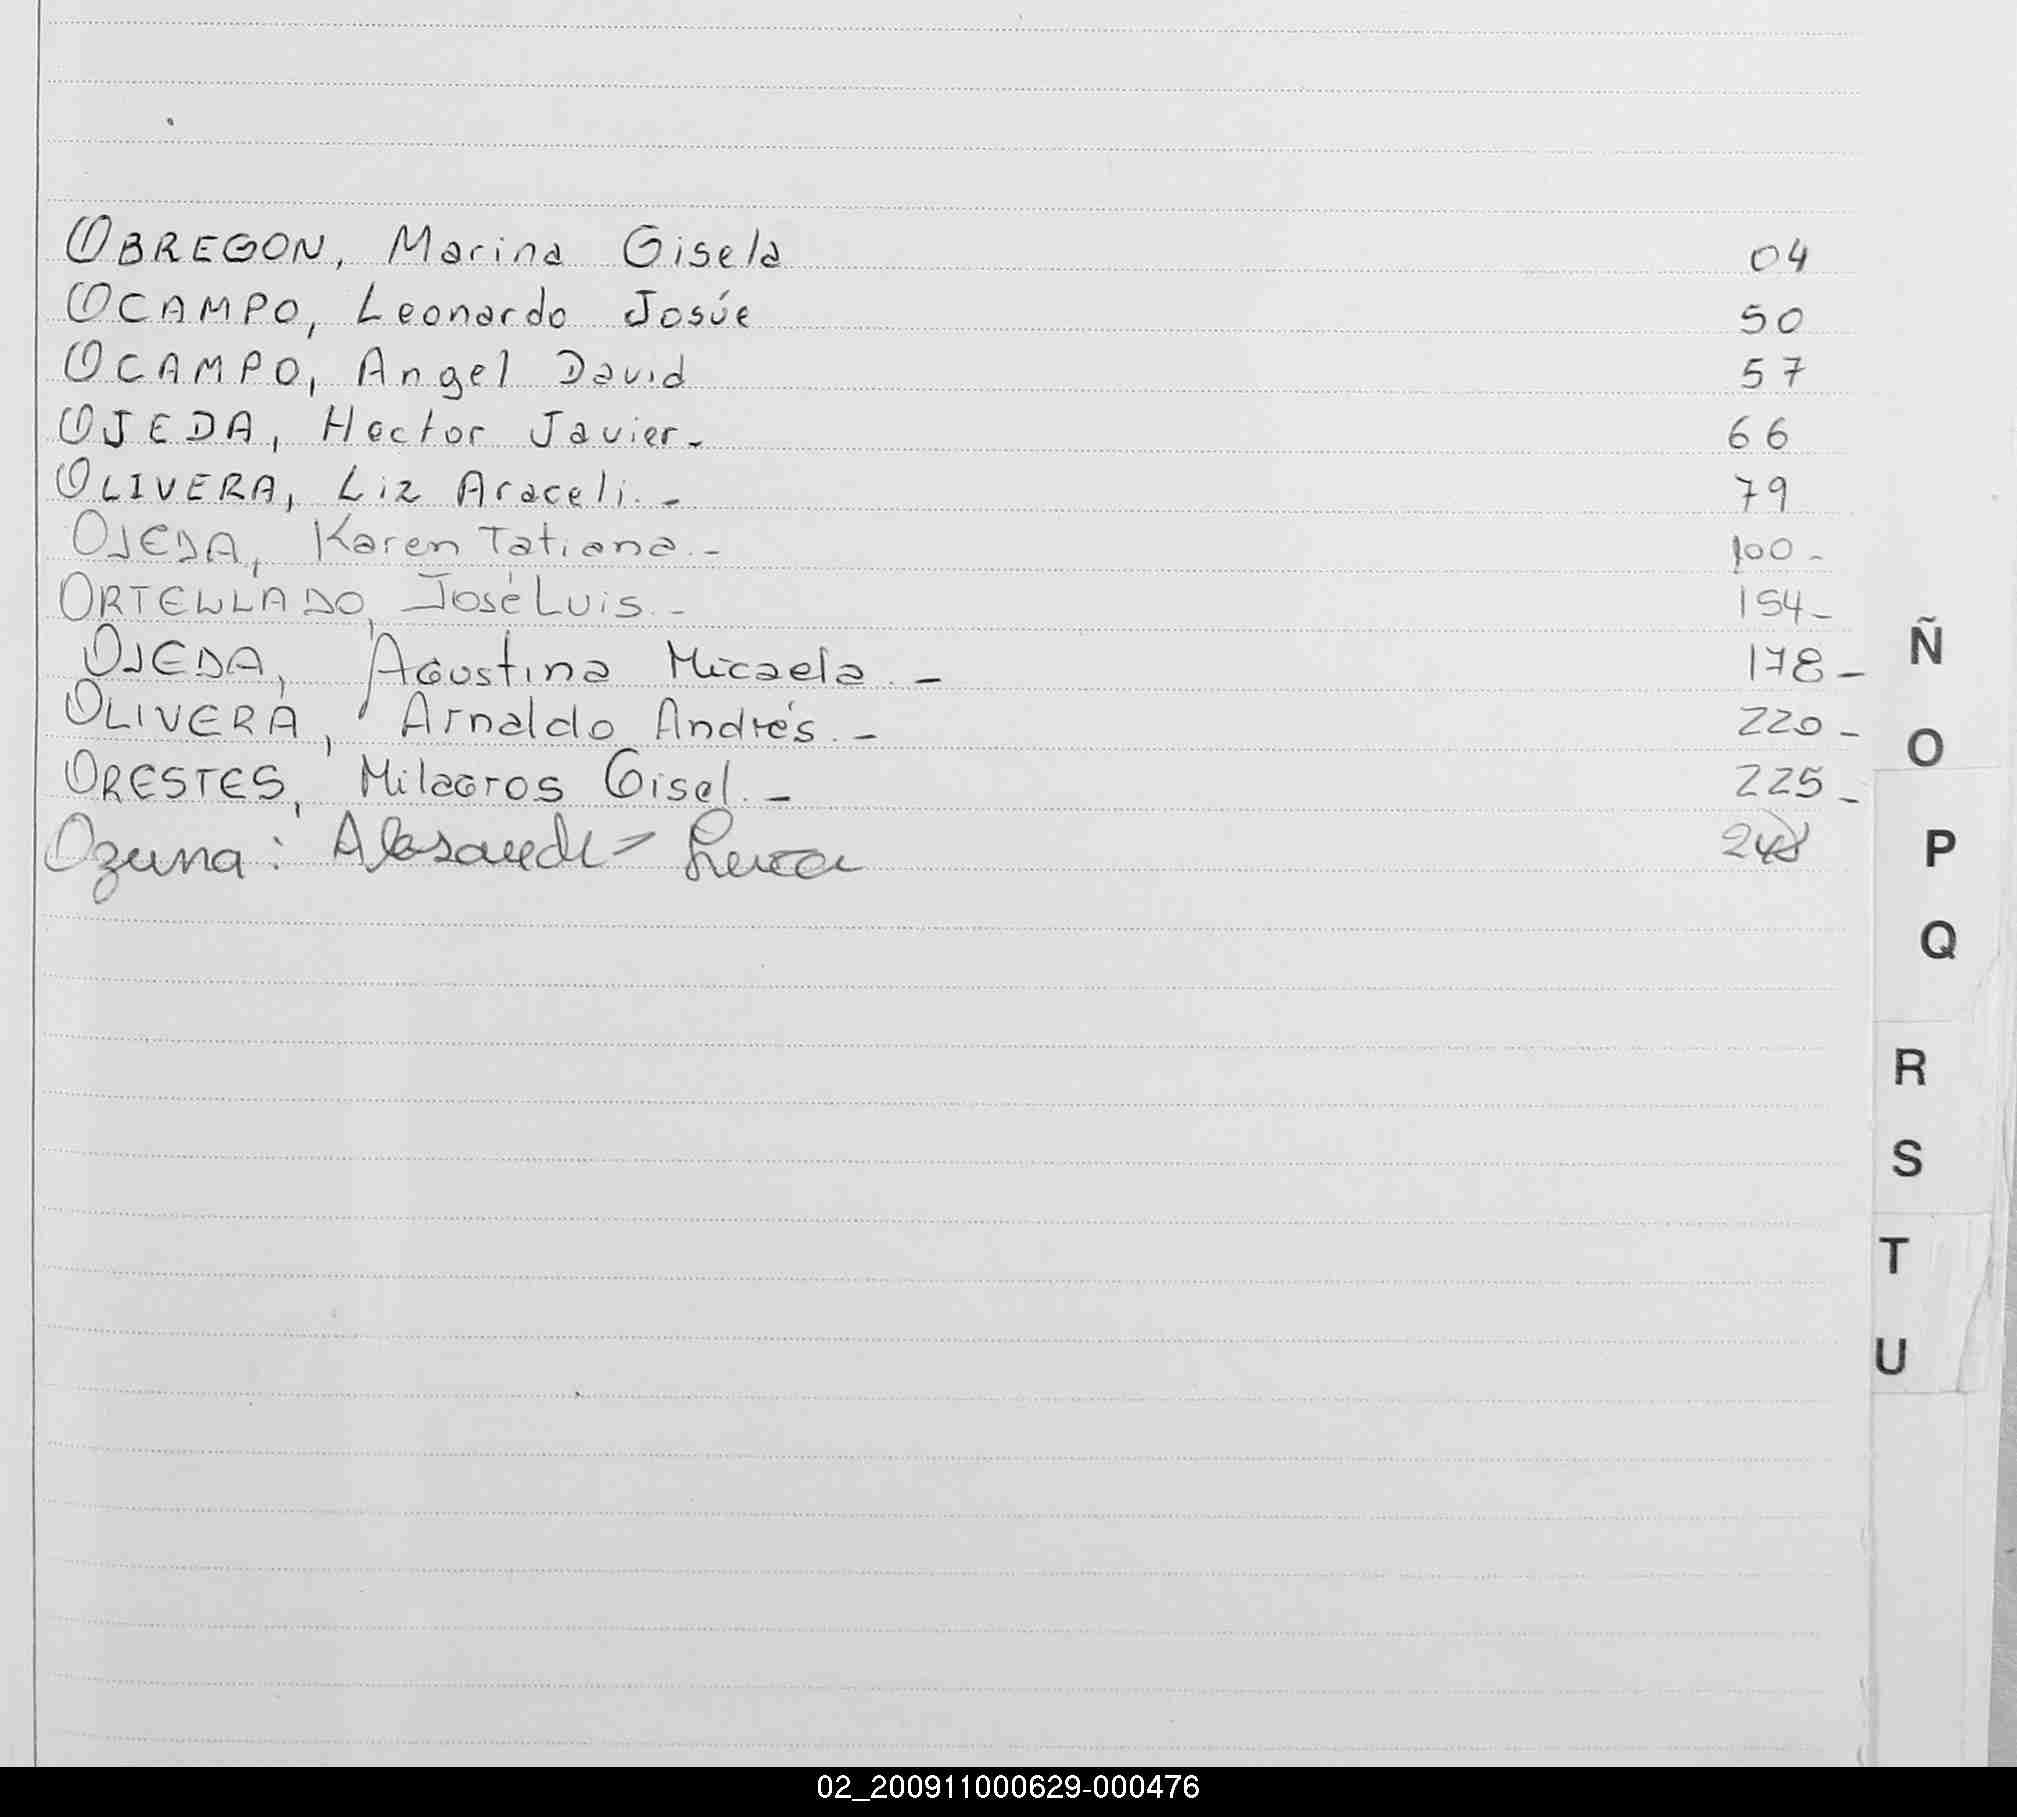 OBREGON, Marina Gisela 04
OCAMPO, Leonardo Josúe 50
OCAMPO, Angel David 57
OJEDA, Hector Javier.- 66
OLIVERA, Liz Araceli.- 79
OJEDA, Karen Tatiana.- 100-
ORTELLADO, José Luis.- 154-
OJEDA, Agustina Micaela.- 178-
OLIVERA, Arnaldo Andrés.- 220-
ORESTES, Milagros Gisel.- 225-
Ozuna:
Ñ
O
P
Q
R
S
T
U
02_200911000629-000476